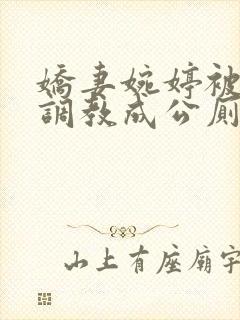 嬌妻婉婷被
調教成公廁
山上有座廟字